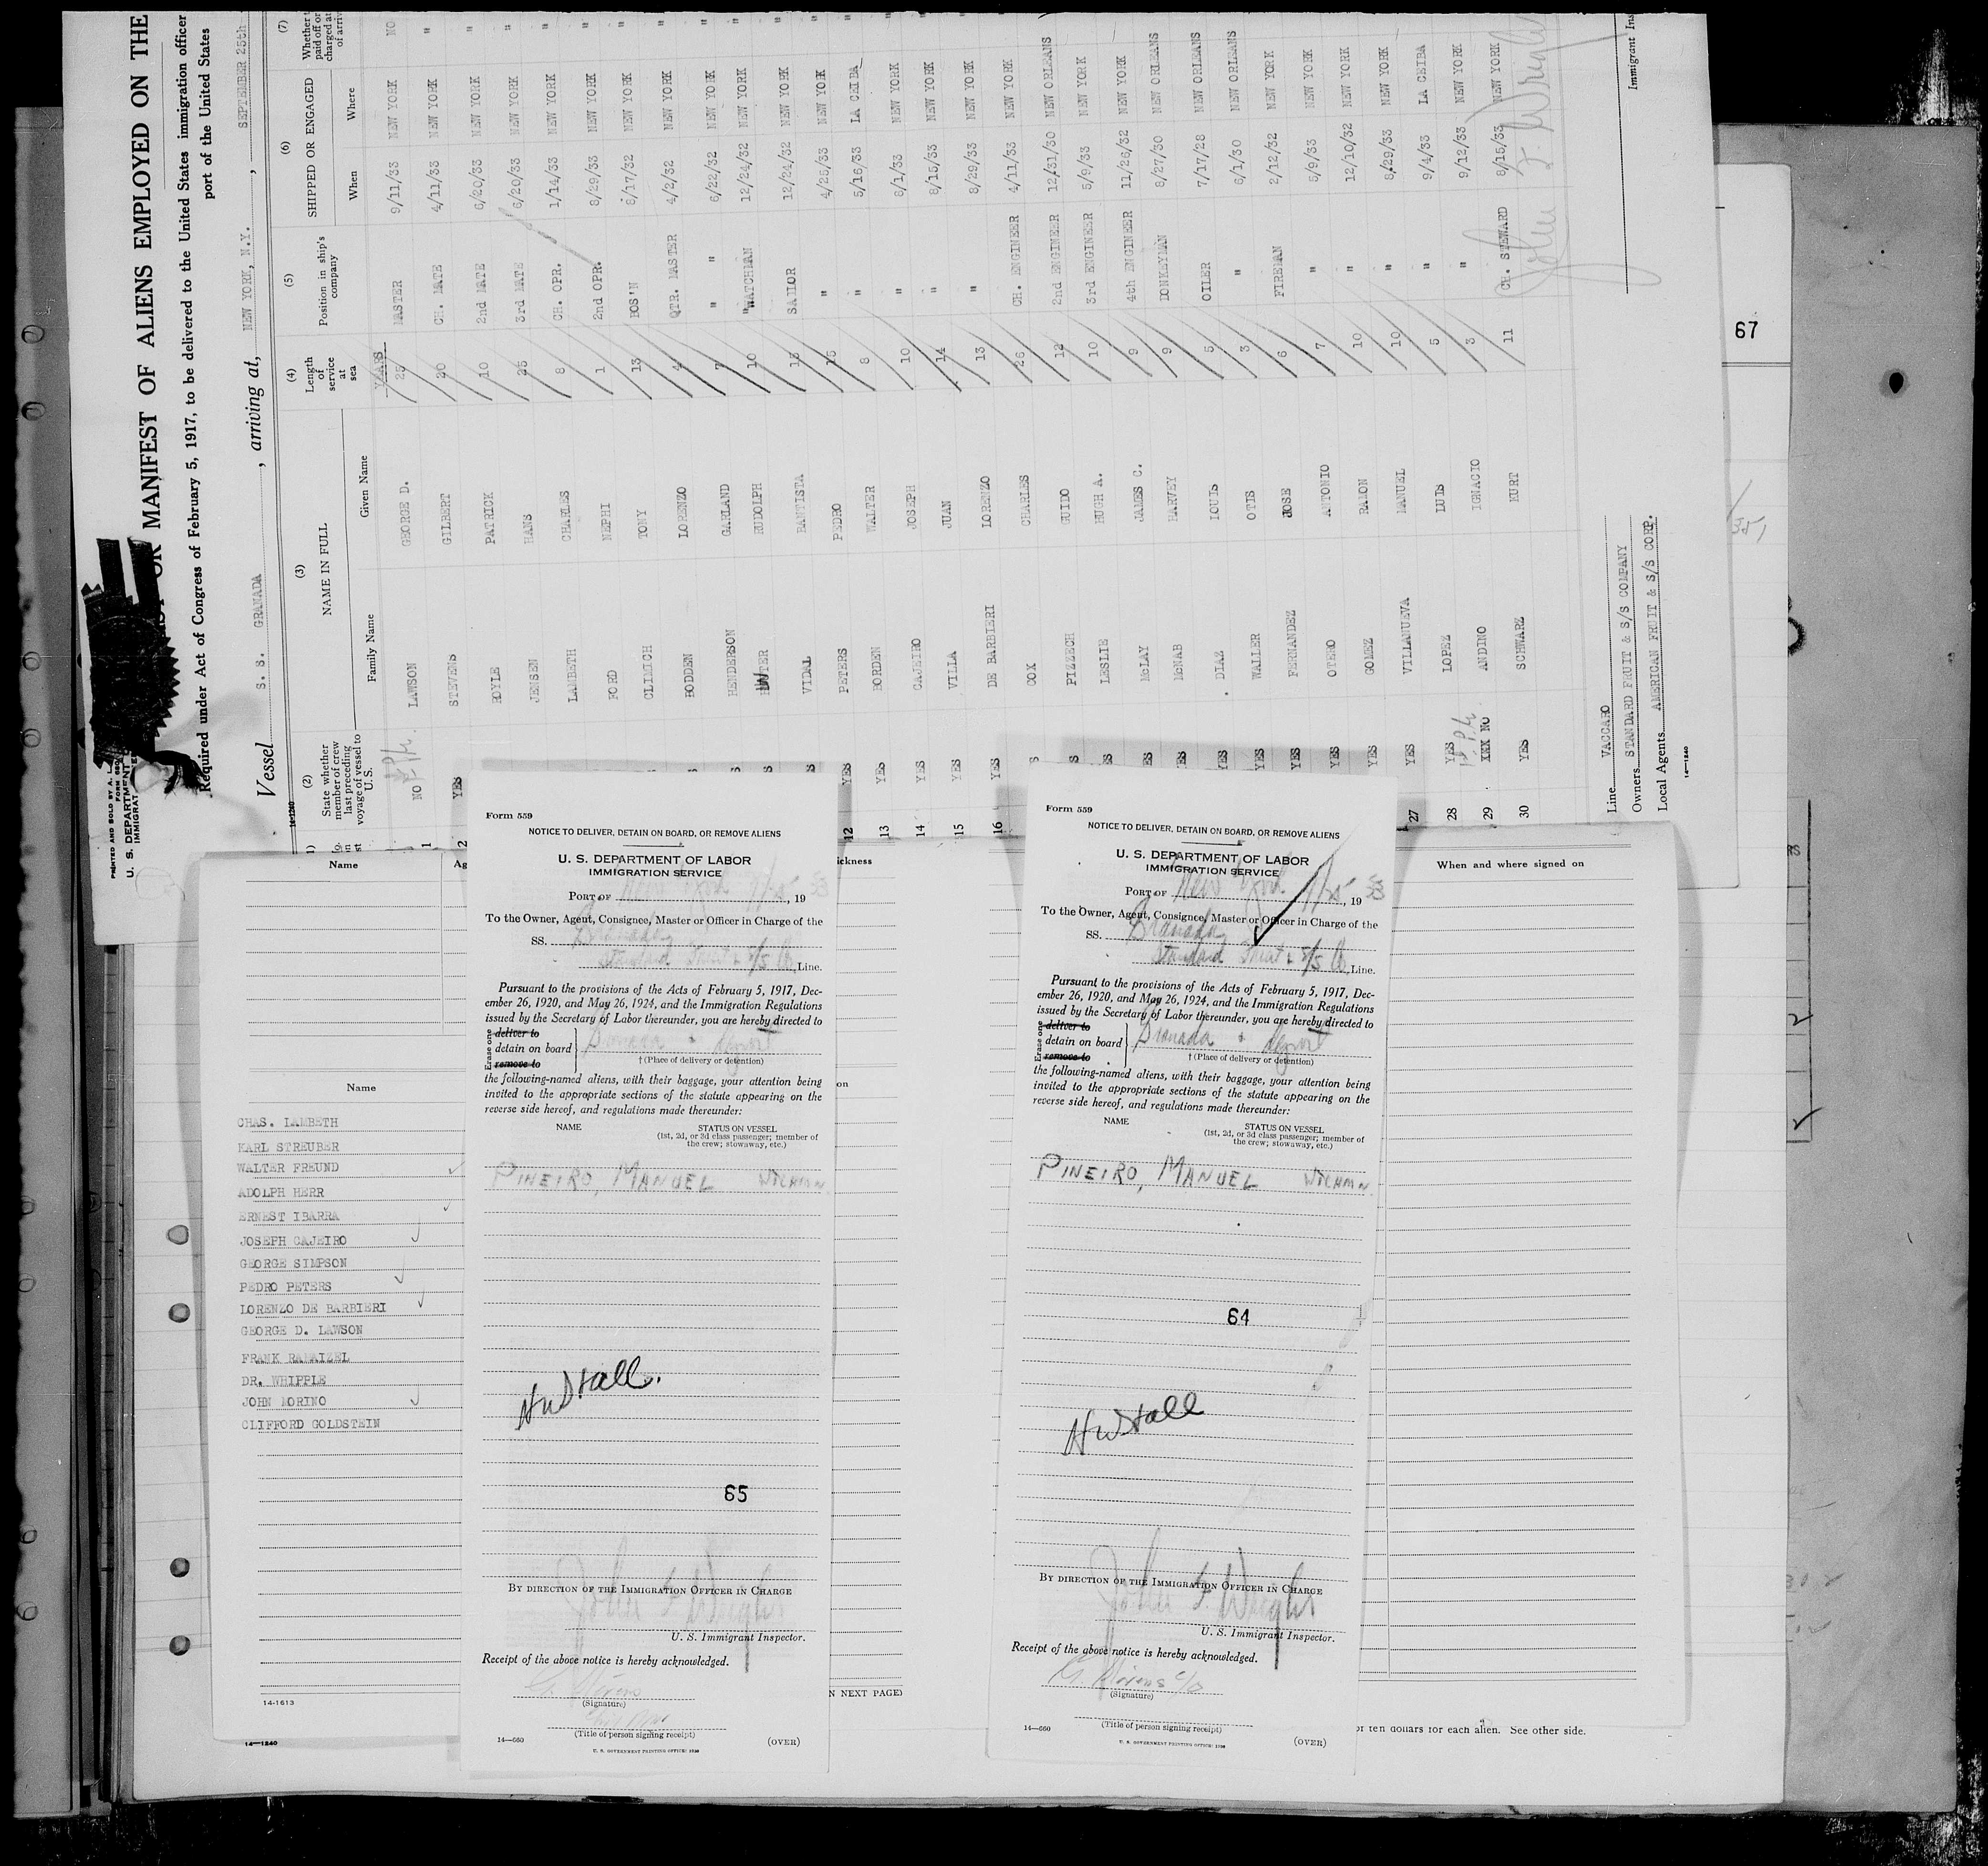 LIST OR MANIFEST OF ALIENS EMPLOYED ON THE
Required under Act of Congress of February 5, 1917, to be delivered to the United States immigration officer
port of the United States
PRINTED AND SOLD BY A.
U. S. DEPARTMENT
IMMIGRAT
Vessel S. S. GRANADA, arriving at, NEW YORK, N.Y., SEPTEMBER 25th
14-1240
(2) (3) (4) (5) (6) (7)
State whether member of crew last preceding voyage of vessel to U. S.
NAME IN FULL
Family Name Given Name
Length of service at sea
Position in ship's company
SHIPPED OR ENGAGED
When Where
Whether paid off or charged at of arriv
YEARS
1 NO LAWSON GEORGE D. 25 MASTER 9/11/33 NEW YORK NO
2 YES STEVENS GILBERT 20 CH. MATE 4/11/33 NEW YORK "
HOYLE PATRICK 10 2nd MATE 6/20/33 NEW YORK "
JENSEN HANS 25 3rd MATE 6/20/33 NEW YORK "
LAMBETH CHARLES 8 CH. OPR. 1/14/33 NEW YORK "
FORD NEPHI 1 2nd OPR. 8/29/33 NEW YORK "
CLIMICH TONY 13 BOS'N 8/17/32 NEW YORK "
BODDEN LORENZO 4 QTR. MASTER 4/2/32 NEW YORK "
HENDERSON GARLAND 7 " " 6/22/32 NEW YORK "
RUDOLPH 10 WATCHMAN 12/24/32 NEW YORK "
VIDAL BANTISTA 15 SAILOR 12/24/32 NEW YORK "
12 YES PETERS PEDRO 15 " 4/25/33 NEW YORK "
13 YES BORDEN WALTER 8 " 5/16/33 LA CEIBA "
14 YES CAJEIRO JOSEPH 10 " 8/1/33 NEW YORK "
15 YES VILLA JUAN 14 " 8/15/33 NEW YORK "
16 YES DE BARBIERI LORENZO 13 " 8/29/33 NEW YORK "
COX CHARLES 26 CH. ENGINEER 4/11/33 NEW YORK "
PIZZECH GUIDO 12 2nd ENGINEER 12/31/30 NEW ORLEANS
LESLIE HUGH A. 10 3rd ENGINEER 5/9/33 NEW YORK "
McLAY JAMES C. 9 4th ENGINEER 11/26/32 NEW YORK "
McNAB HARVEY 9 DONKEYMAN 8/27/30 NEW ORLEANS "
DIAZ LOUIS 5 OILER 7/17/28 NEW ORLEANS "
YES WALLER OTIS 3 " 6/1/30 NEW ORLEANS "
YES FERNANDEZ JOSE 6 FIREMAN 2/12/32 NEW YORK "
YES OTERO ANTONIO 7 " 5/9/33 NEW YORK "
YES GOMEZ RAMON 10 " 12/10/32 NEW YORK "
27 YES VILLANUEVA MANUEL 10 " 8/29/33 NEW YORK "
28 YES LOPEZ LUIS 5 " 9/4/33 LA CEIBA "
29 NO ANDINO IGNACIO 3 " 9/12/33 NEW YORK "
30 YES SCHWARZ KURT 11 CH. STEWARD 8/15/33 NEW YORK "
John F. Wright
Immigrant Ins
Line VACCARO
Owners STANDARD FRUIT & S/S COMPANY
Local Agents AMERICAN FRUIT & S/S CORP.
14-1240
67
Name Ag
ickness
When and where signed on
Name
on
CHAS. LAMBETH
KARL STREUBER
WALTER FREUND
ADOLPH HERR
ERNEST IBARRA
JOSEPH CAJEIRO
GEORGE SIMPSON
PEDRO PETERS
LORENZO DE BARBIERI
GEORGE D. LAWSON
FRANK RAMAIZEL
DR. WHIPPLE
JOHN MORINO
CLIFFORD GOLDSTEIN
14-1613
N NEXT PAGE)
14-1240
or ten dollars for each alien. See other side.
Form 559
NOTICE TO DELIVER, DETAIN ON BOARD, OR REMOVE ALIENS
U. S. DEPARTMENT OF LABOR
IMMIGRATION SERVICE
PORT OF New York 9/25, 1933
To the Owner, Agent, Consignee, Master or Officer in Charge of the
SS. Granada
Standard Fruit & S/S Co Line.
Pursuant to the provisions of the Acts of February 5, 1917, Dec-
ember 26, 1920, and May 26, 1924, and the Immigration Regulations
issued by the Secretary of Labor thereunder, you are hereby directed to
Erase one
deliver to
detain on board Granada + deport
remove to
† (Place of delivery or detention)
the following-named aliens, with their baggage, your attention being
invited to the appropriate sections of the statute appearing on the
reverse side hereof, and regulations made thereunder:
NAME STATUS ON VESSEL
(1st, 2d, or 3d class passenger; member of
the crew; stowaway, etc.)
PINEIRO, MANUEL WTCHMN
65
BY DIRECTION OF THE IMMIGRATION OFFICER IN CHARGE
John F. Wright
U. S. Immigrant Inspector.
Receipt of the above notice is hereby acknowledged.
G. Stevens
(Signature)
(Title of person signing receipt)
14—660 U. S. GOVERNMENT PRINTING OFFICE (OVER)
Form 559
NOTICE TO DELIVER, DETAIN ON BOARD, OR REMOVE ALIENS
U. S. DEPARTMENT OF LABOR
IMMIGRATION SERVICE
PORT OF New York 9/25, 1933
To the Owner, Agent, Consignee, Master or Officer in Charge of the
SS. Granada
Standard Fruit & S/S Co Line.
Pursuant to the provisions of the Acts of February 5, 1917, Dec-
ember 26, 1920, and May 26, 1924, and the Immigration Regulations
issued by the Secretary of Labor thereunder, you are hereby directed to
Erase one
deliver to
detain on board Granada + deport
remove to
† (Place of delivery or detention)
the following-named aliens, with their baggage, your attention being
invited to the appropriate sections of the statute appearing on the
reverse side hereof, and regulations made thereunder:
NAME STATUS ON VESSEL
(1st, 2d, or 3d class passenger; member of
the crew; stowaway, etc.)
PINEIRO, MANUEL WTCHMN
64
BY DIRECTION OF THE IMMIGRATION OFFICER IN CHARGE
John F. Wright
U. S. Immigrant Inspector.
Receipt of the above notice is hereby acknowledged.
G. Stevens c/o
(Signature)
(Title of person signing receipt)
14—660 U. S. GOVERNMENT PRINTING OFFICE (OVER)